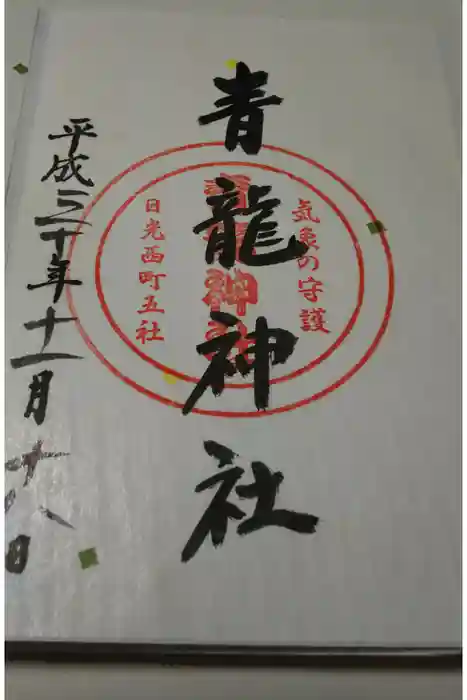 青龍神社
気象の守護
青龍神社
日光西町五社
平成三十年十一月十八日